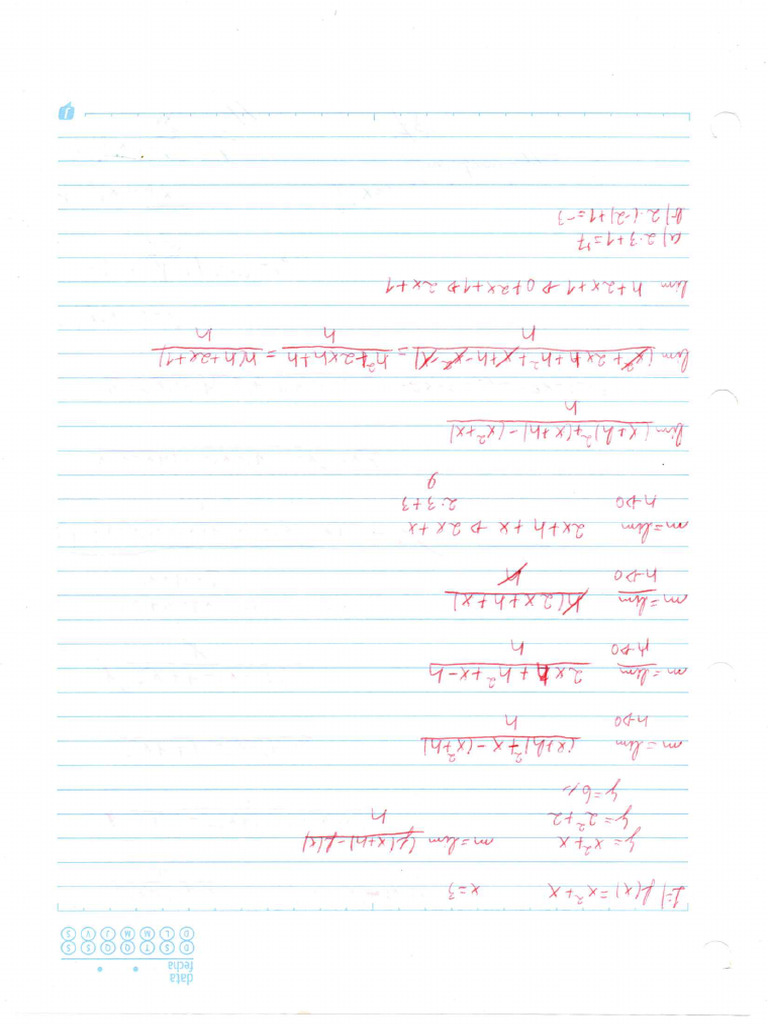 data
fecha
D S T Q Q S S
D L M M J V S
1-) f(x)=x²+x x=3
y=x²+x m=lim f(x+h)-f(x)
h
y=2²+2
y=6,,
m=lim (x+h)²+x-(x²+h)
h→0 h
m=lim 2xh+h²+x-h
h→0 h
m=lim h(2x+h+x)
h→0 h
m=lim 2x+h+x → 2x+x
h→0 2·3+3
9
lim (x+h)²+(x+h)-(x²+x)
h
lim (x²+2xh+h²+x+h-x²-x) = h²+2xh+h = h(h+2x+1)
h h h
lim h+2x+1 → 0+2x+1 → 2x+1
a) 2·3+1=7
b) 2·(-2)+1=-3
1